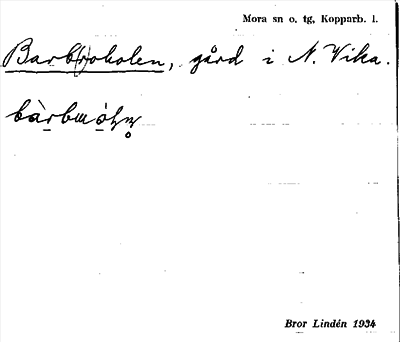 Mora sn o. tg, Kopparb. l.
Barb(r)oholen, gård i N. Vika.
Bror Lindén 1934